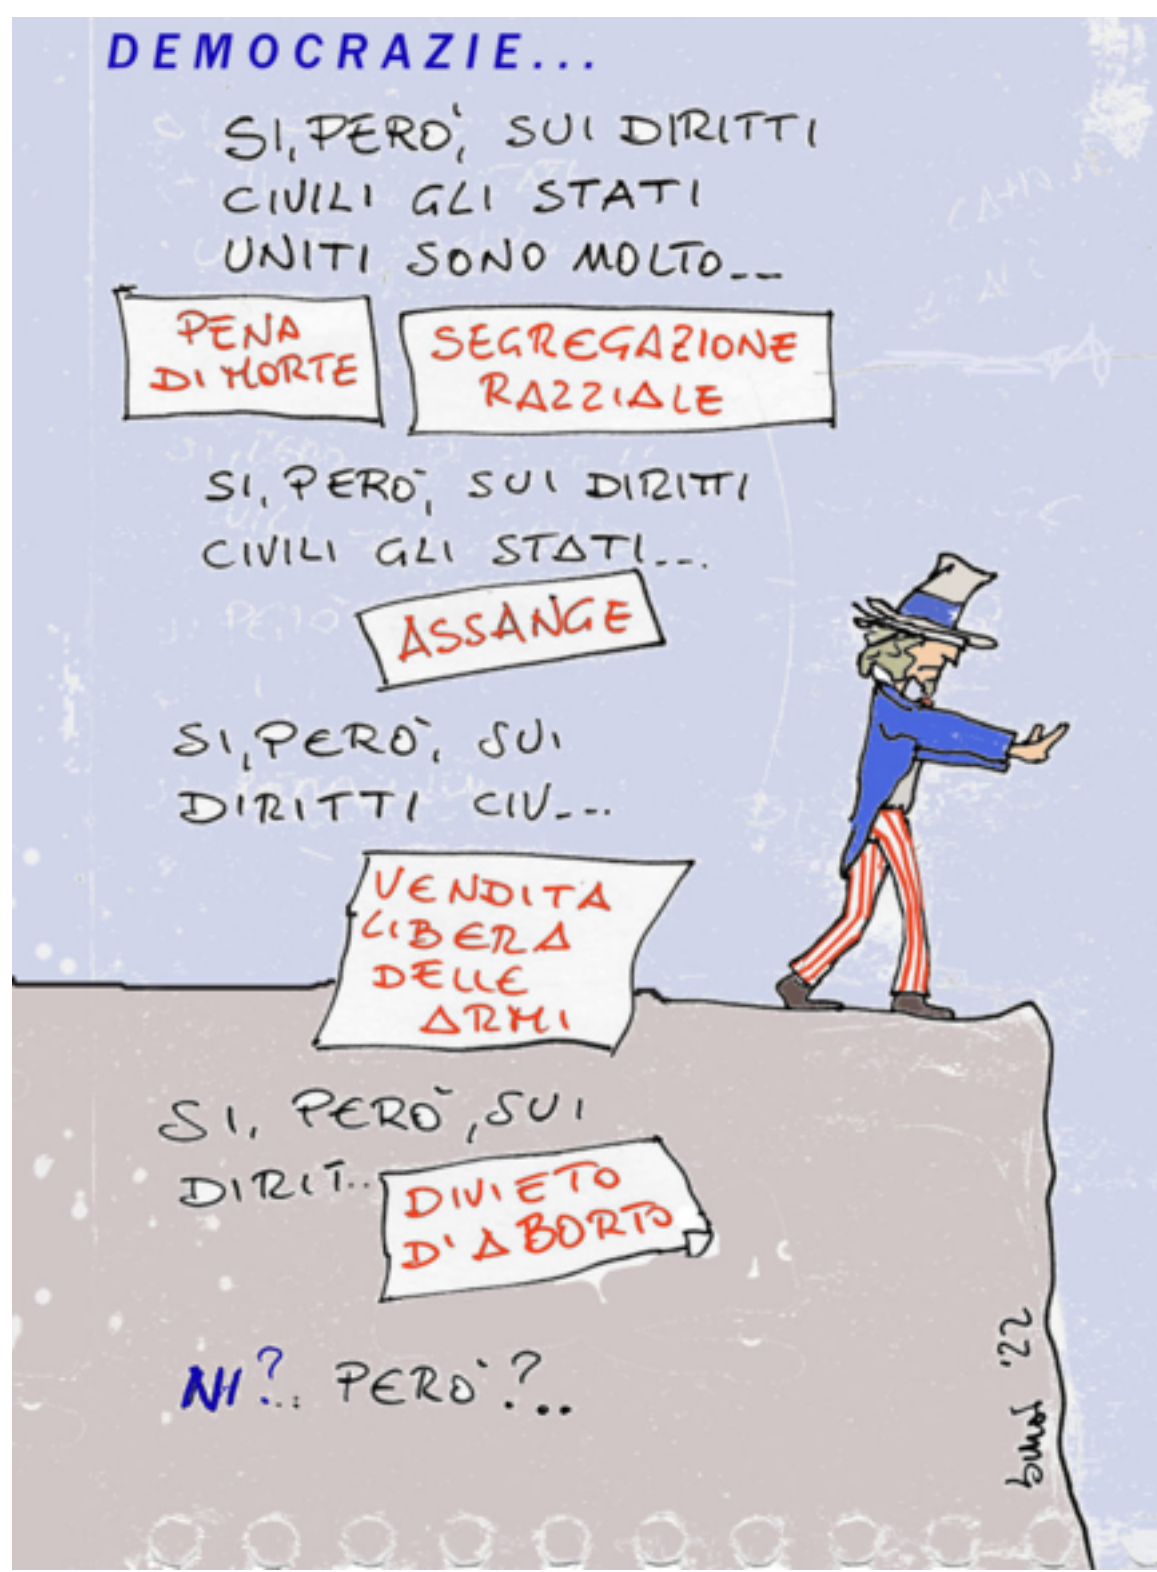 DEMOCRAZIE...
SI, PERO', SUI DIRITTI
CIVILI GLI STATI
UNITI SONO MOLTO...
PENA
DI MORTE
SEGREGAZIONE
RAZZIALE
SI, PERO', SUI DIRITTI
CIVILI GLI STATI...
ASSANGE
SI, PERO', SUI
DIRITTI CIV...
VENDITA
LIBERA
DELLE
ARMI
SI, PERO', SUI
DIRIT..
DIVIETO
D'ABORTO
NI?.. PERO'?..
'22